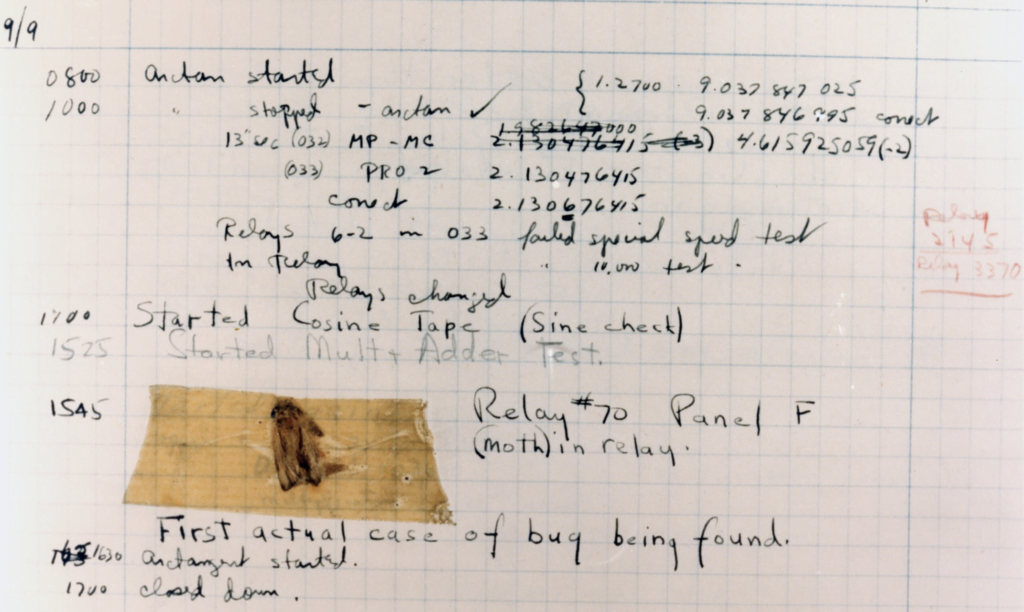 9/9
0800 arctan started { 1.2700 · 9.037 847 025
1000 " stopped - arctan ✓ 9.037 846 995 conect
13"sec (032) MP - MC 1.982647000 2.130476415 (-3) 4.615925059(-2)
(033) PRO 2 2.130476415
conect 2.130676415
Relays 6-2 in 033 failed special speed test
In Relay " 10.000 test .
Relay
2145
Relay 3370
Relays changed
1700 Started Cosine Tape (Sine check)
1525 Started Mult+ Adder Test.
1545 Relay #70 Panel F
(moth) in relay.
First actual case of bug being found.
1630 arctangent started.
1700 closed down.